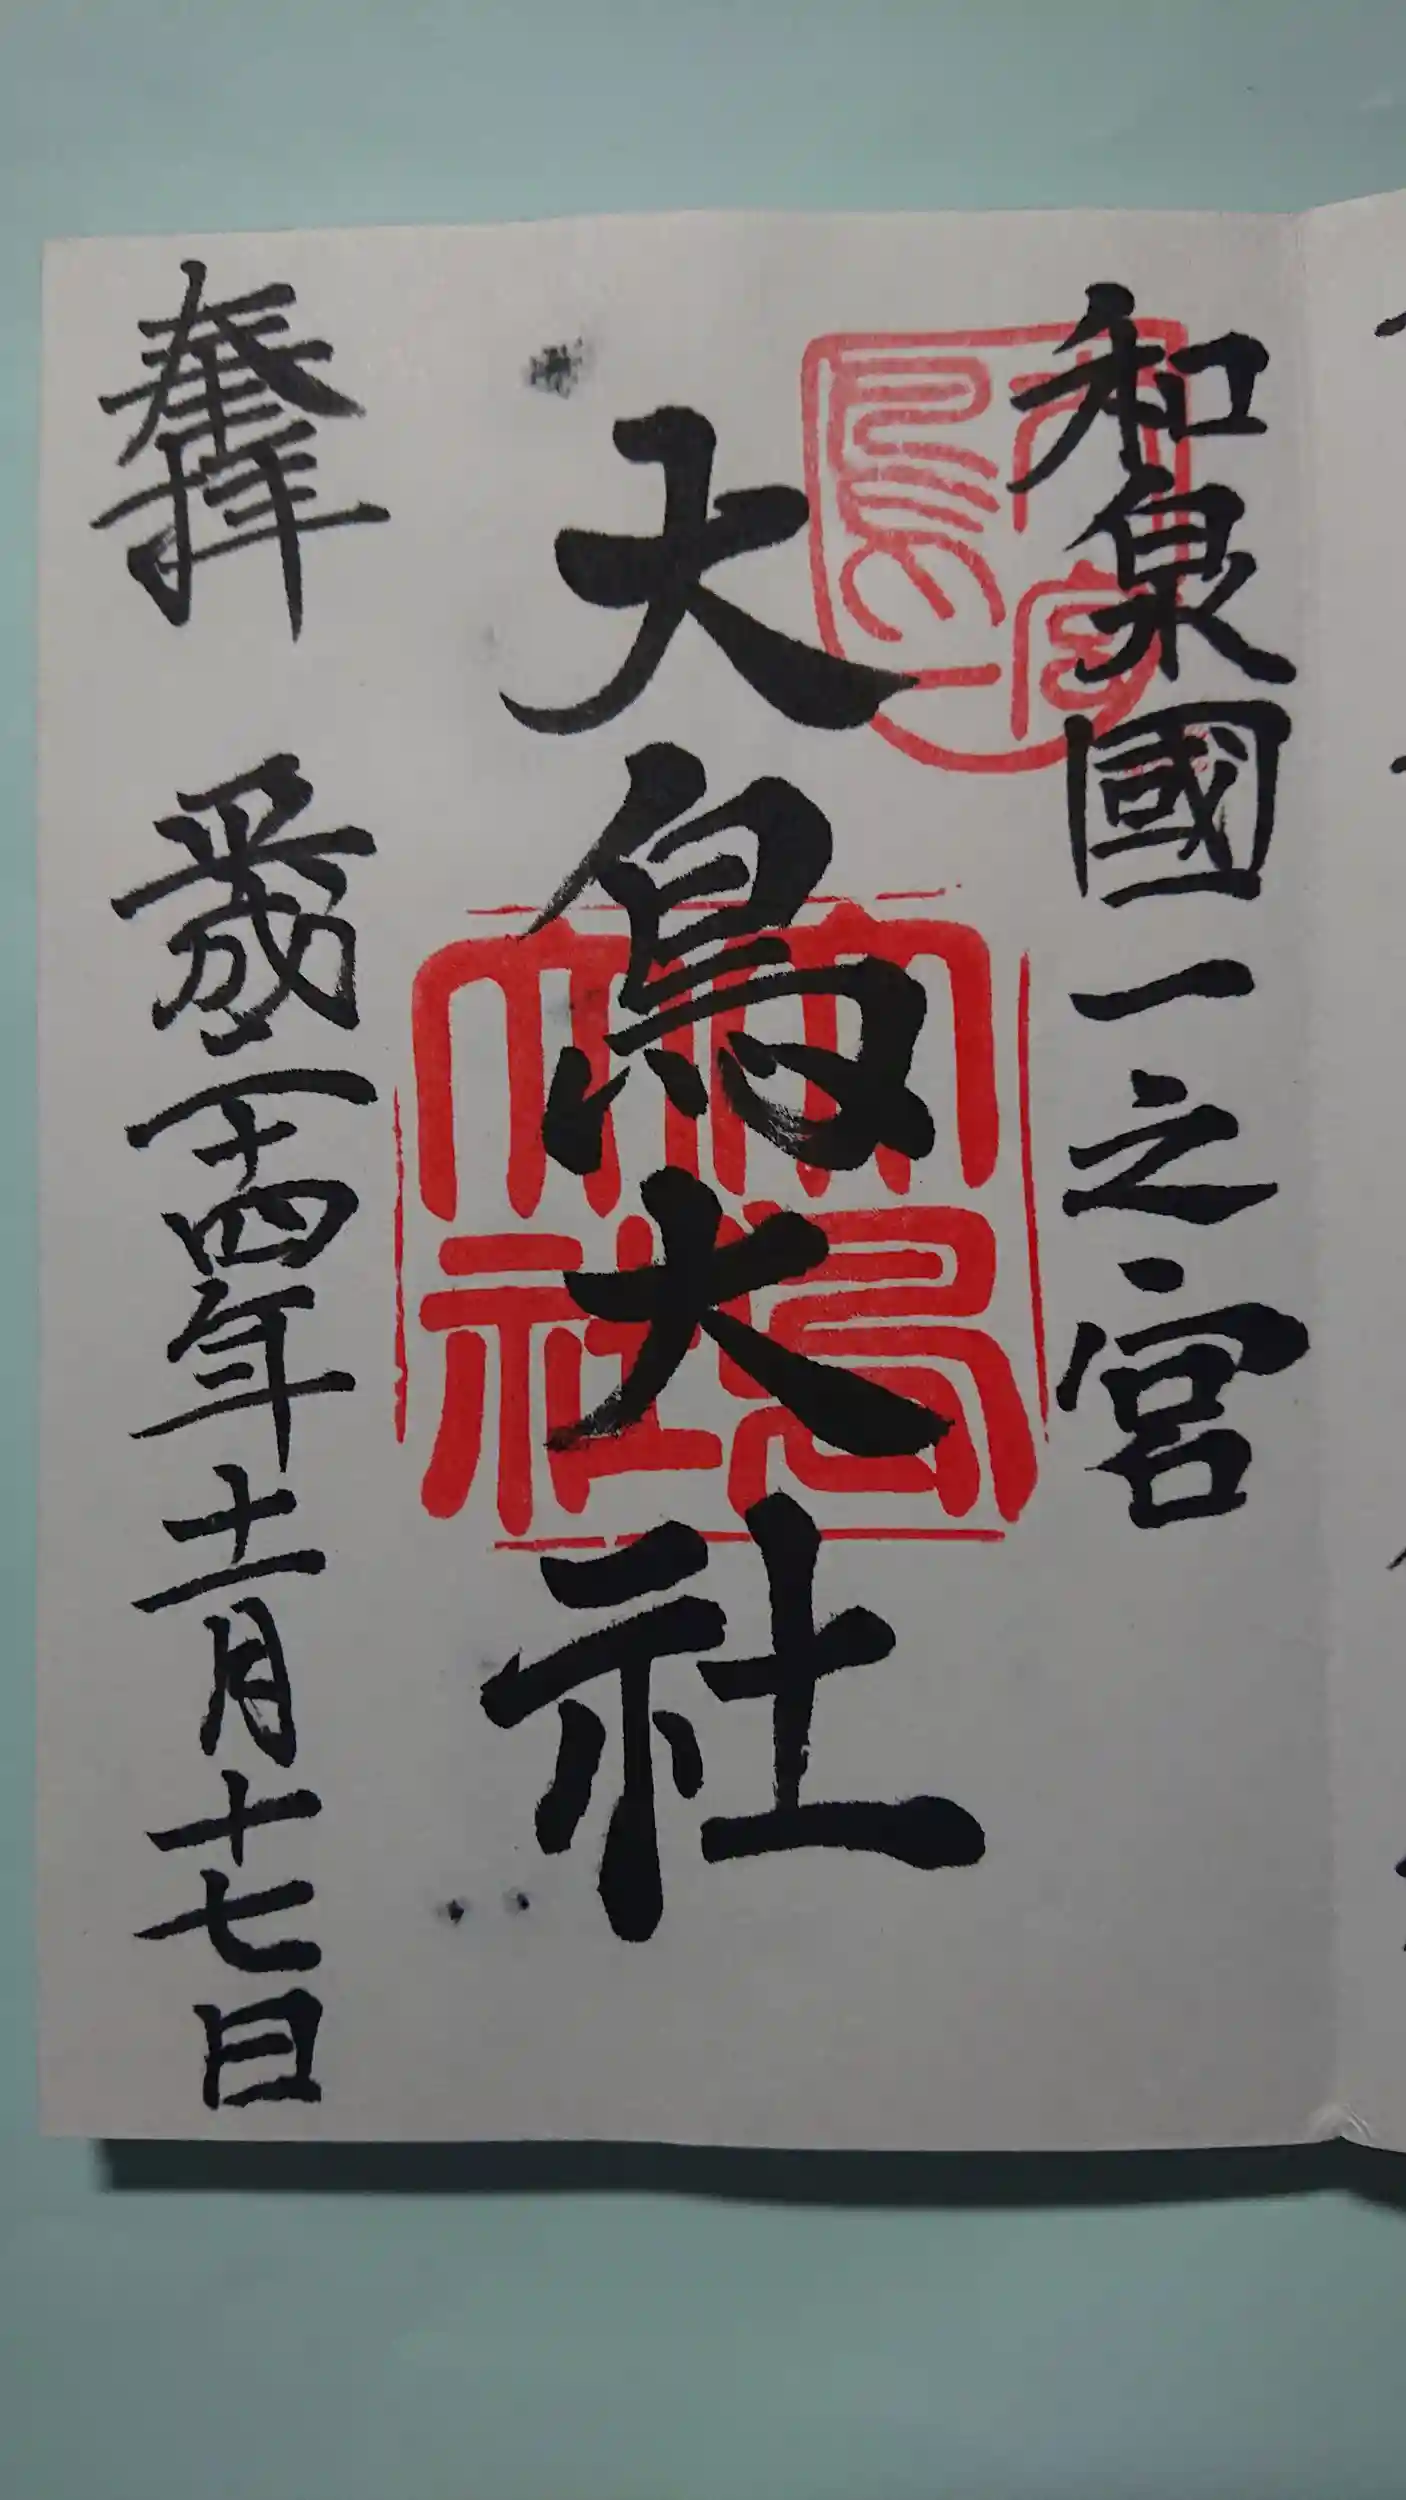 和泉國一之宮
大鳥大社
大鳥大社
奉拝 平成二十四年十一月十七日